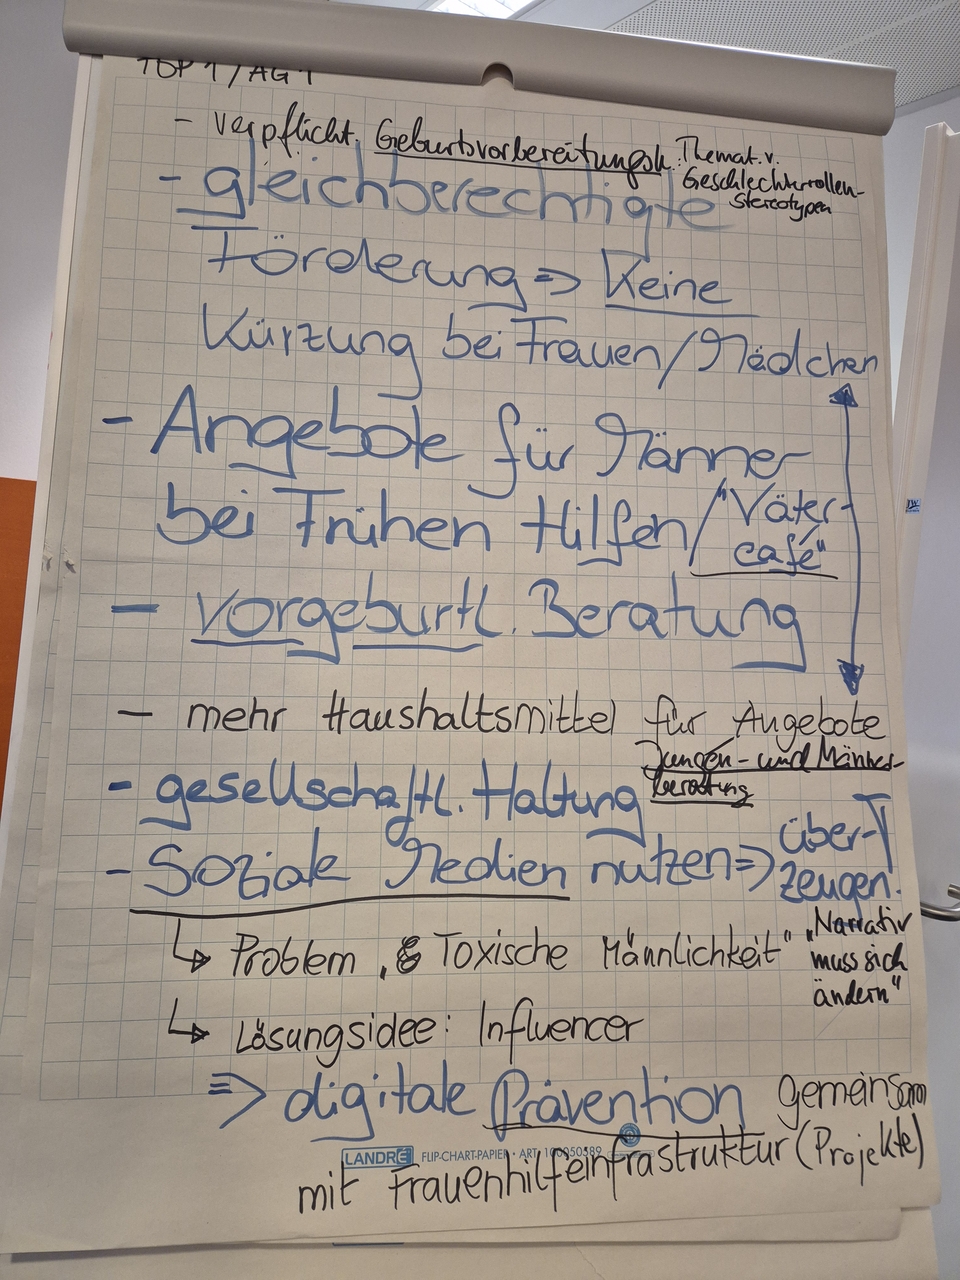 TOP 1 / AG 1
- verpflicht. Geburtsvorbereitungsk. Themat. v.
Geschlechterrollen-
stereotypen
- gleichberechtigte
Förderung => Keine
Kürzung bei Frauen/Mädchen
- Angebote für Männer
bei Frühen Hilfen/"Väter-
café"
- vorgeburtl. Beratung
- mehr Haushaltsmittel für Angebote
Jungen- und Männer-
beratung
- gesellschaftl. Haltung
- Soziale Medien nutzen => über-
zeugen.
↳ Problem „Toxische Männlichkeit" „Narrativ
muss sich
ändern"
↳ Lösungsidee: Influencer
=> digitale Prävention gemeinsam
LANDRÉ FLIP-CHART-PAPIER · ART 100050589
mit Frauenhilfeinfrastruktur (Projekte)